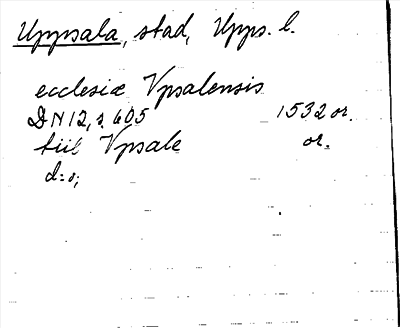 Uppsala, stad, Upps. l.
ecclesiæ Vpsalensis
DN 12, s. 605 1532 or.
tiil Vpsale or.
d:o;